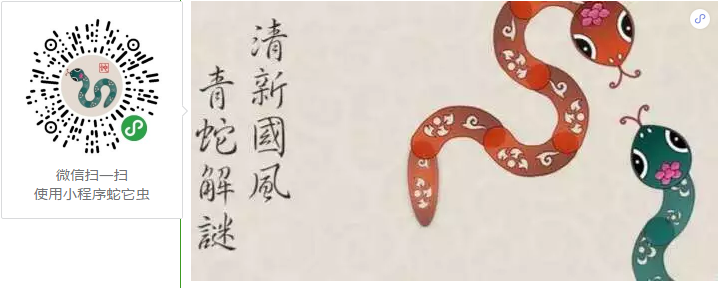 微信扫一扫
使用小程序蛇它虫
清新國風
青蛇解謎